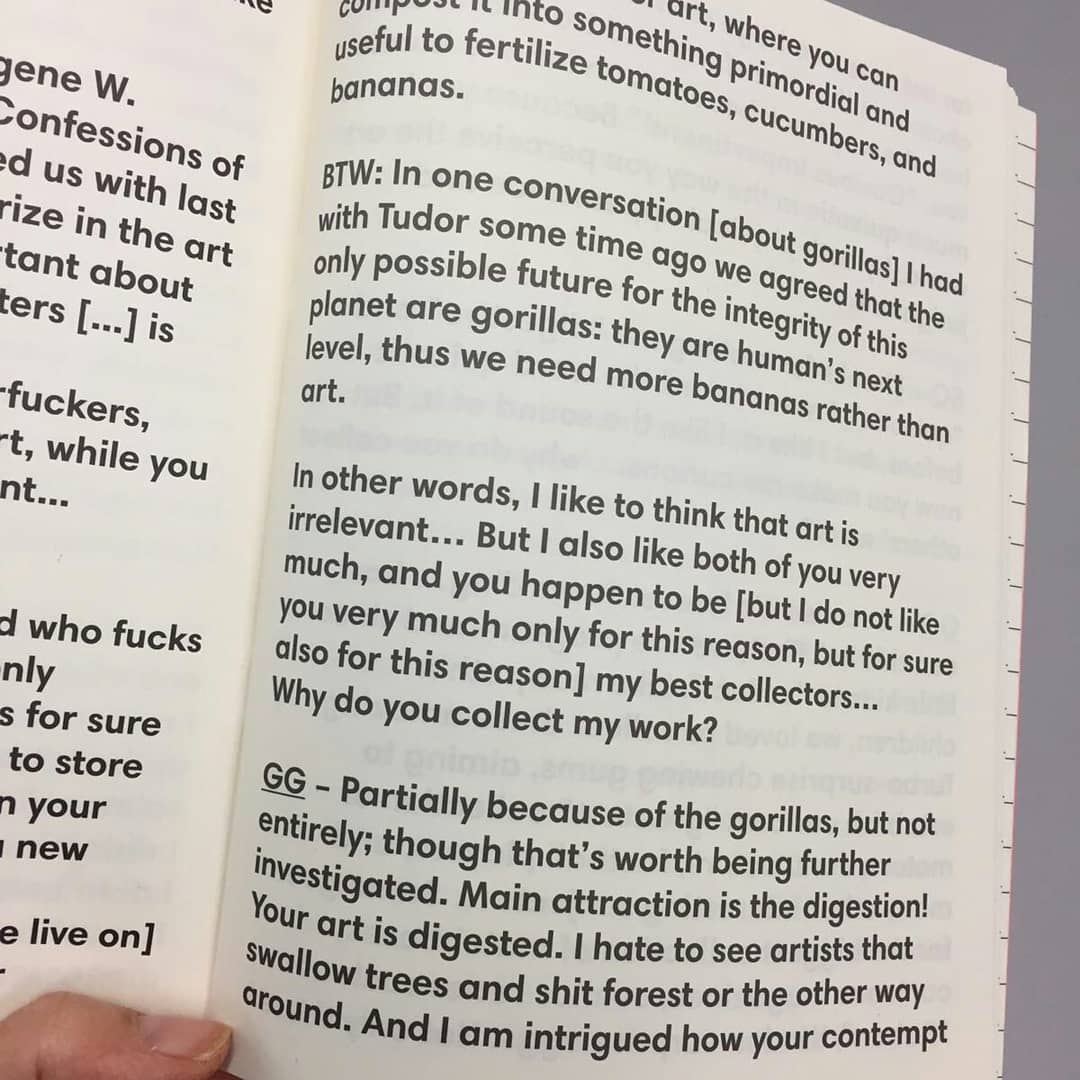 gene W.
Confessions of
ed us with last
rize in the art
rtant about
ters [...] is
rfuckers,
rt, while you
nt...
d who fucks
nly
s for sure
to store
n your
new
e live on]
art, where you can
compost it into something primordial and
useful to fertilize tomatoes, cucumbers, and
bananas.
BTW: In one conversation [about gorillas] I had
with Tudor some time ago we agreed that the
only possible future for the integrity of this
planet are gorillas: they are human's next
level, thus we need more bananas rather than
art.
In other words, I like to think that art is
irrelevant... But I also like both of you very
much, and you happen to be [but I do not like
you very much only for this reason, but for sure
also for this reason] my best collectors...
Why do you collect my work?
GG – Partially because of the gorillas, but not
entirely; though that's worth being further
investigated. Main attraction is the digestion!
Your art is digested. I hate to see artists that
swallow trees and shit forest or the other way
around. And I am intrigued how your contempt